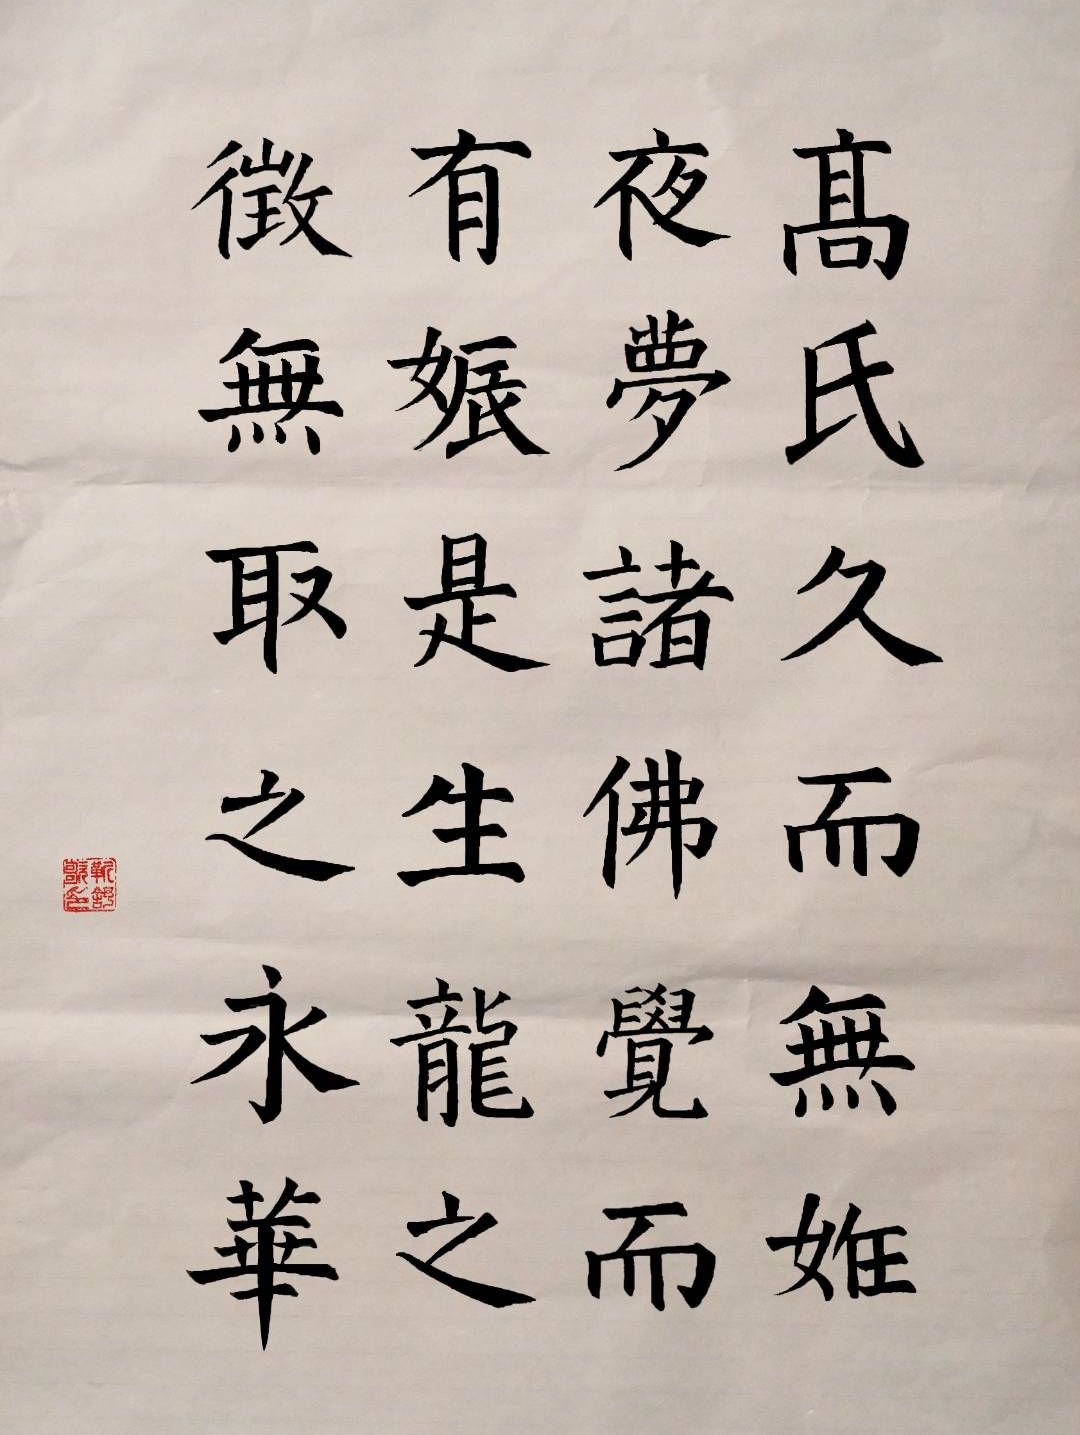 髙氏久而無姙
夜夢諸佛覺而
有娠是生龍之
徵無取之永華